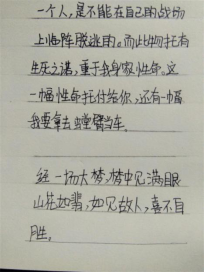 一个人,是不能在自己的战场
上临阵脱逃的。而此物托有
生死之谋,重于我身家性命。这
一幅性命托付给你,还有一幅
我要拿去螳臂当车。
经一场大梦,梦中见满眼
山花如翡,如见故人,喜不自
胜。